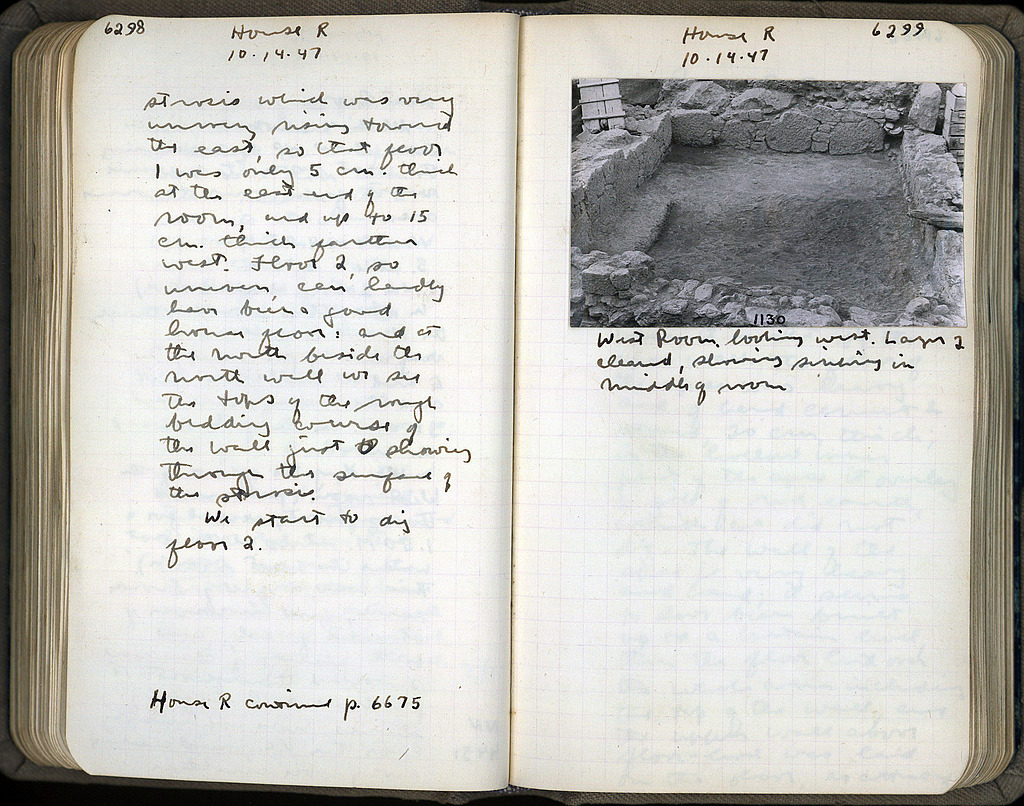 6298
House R
10.14.47
strosis which was very
uneven rising toward
the east, so that floor
1 was only 5 cm. thick
at the east end of the
room, and up to 15
cm. thick farther
west. Floor 2, so
uneven, can hardly
have been a good
house floor: and at
the north beside the
north wall we see
the tops of the rough
bedding course of
the wall just showing
through the surface of
the strosis.
We start to dig
floor 2.
House R continued p. 6675
6299
House R
10.14.47
1130
West Room, looking west. Layer 2
cleaned, showing sinking in
middle of room